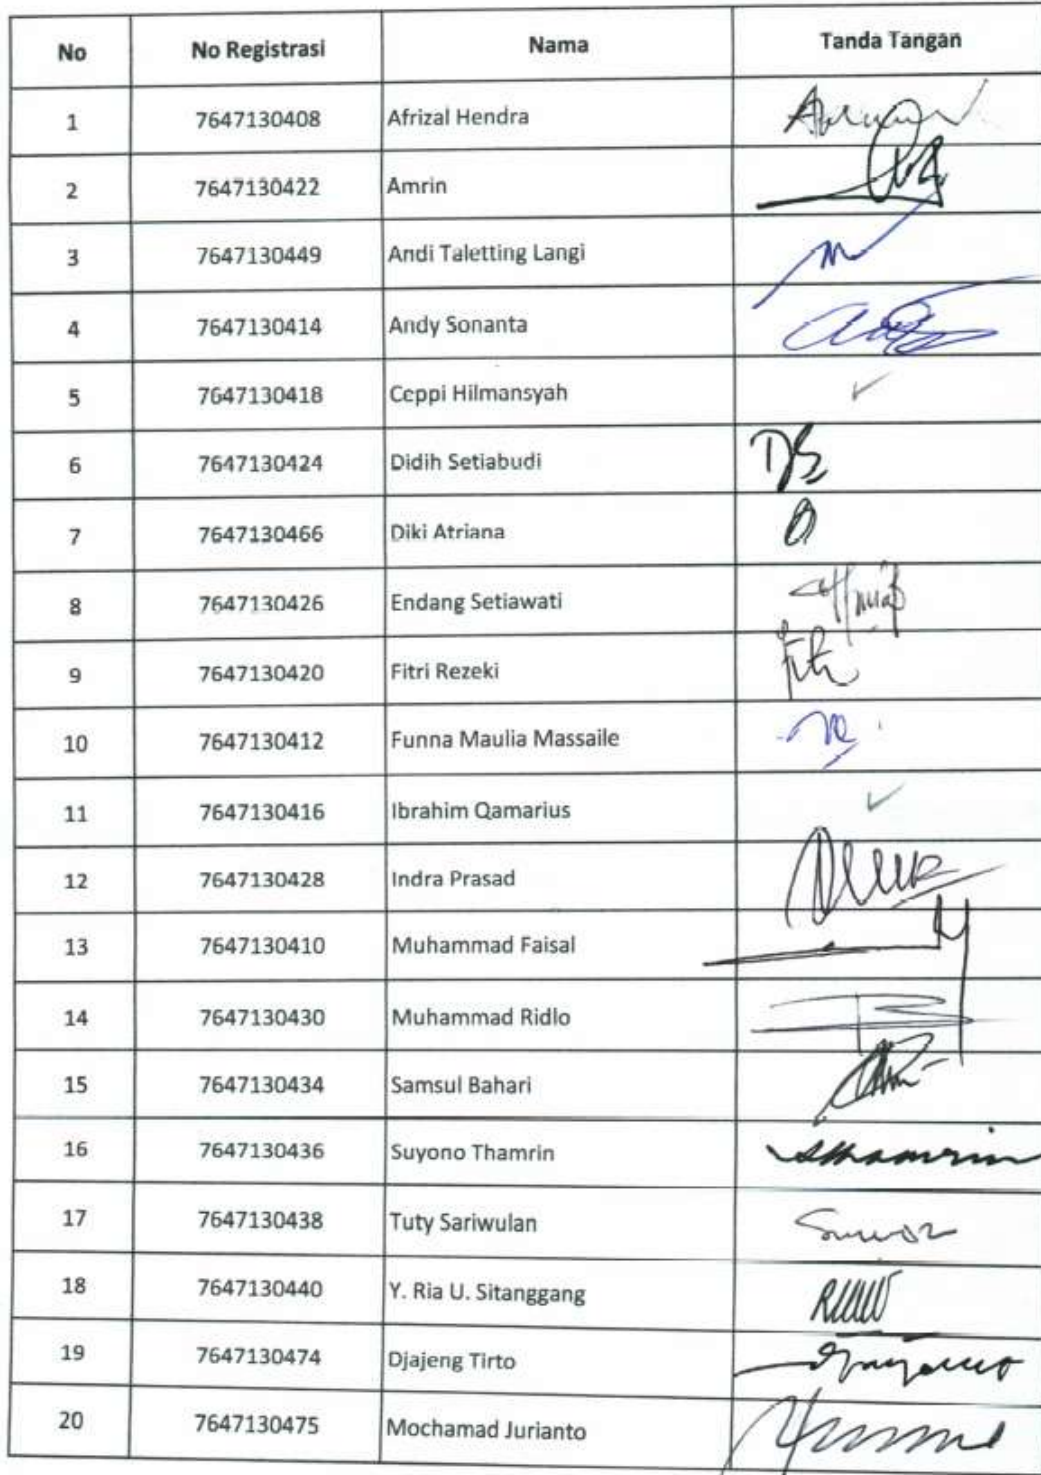 No No Registrasi Nama Tanda Tangan
1 7647130408 Afrizal Hendra
2 7647130422 Amrin
3 7647130449 Andi Taletting Langi
4 7647130414 Andy Sonanta
5 7647130418 Ceppi Hilmansyah
6 7647130424 Didih Setiabudi
7 7647130466 Diki Atriana
8 7647130426 Endang Setiawati
9 7647130420 Fitri Rezeki
10 7647130412 Funna Maulia Massaile
11 7647130416 Ibrahim Qamarius
12 7647130428 Indra Prasad
13 7647130410 Muhammad Faisal
14 7647130430 Muhammad Ridlo
15 7647130434 Samsul Bahari
16 7647130436 Suyono Thamrin
17 7647130438 Tuty Sariwulan
18 7647130440 Y. Ria U. Sitanggang
19 7647130474 Djajeng Tirto
20 7647130475 Mochamad Jurianto